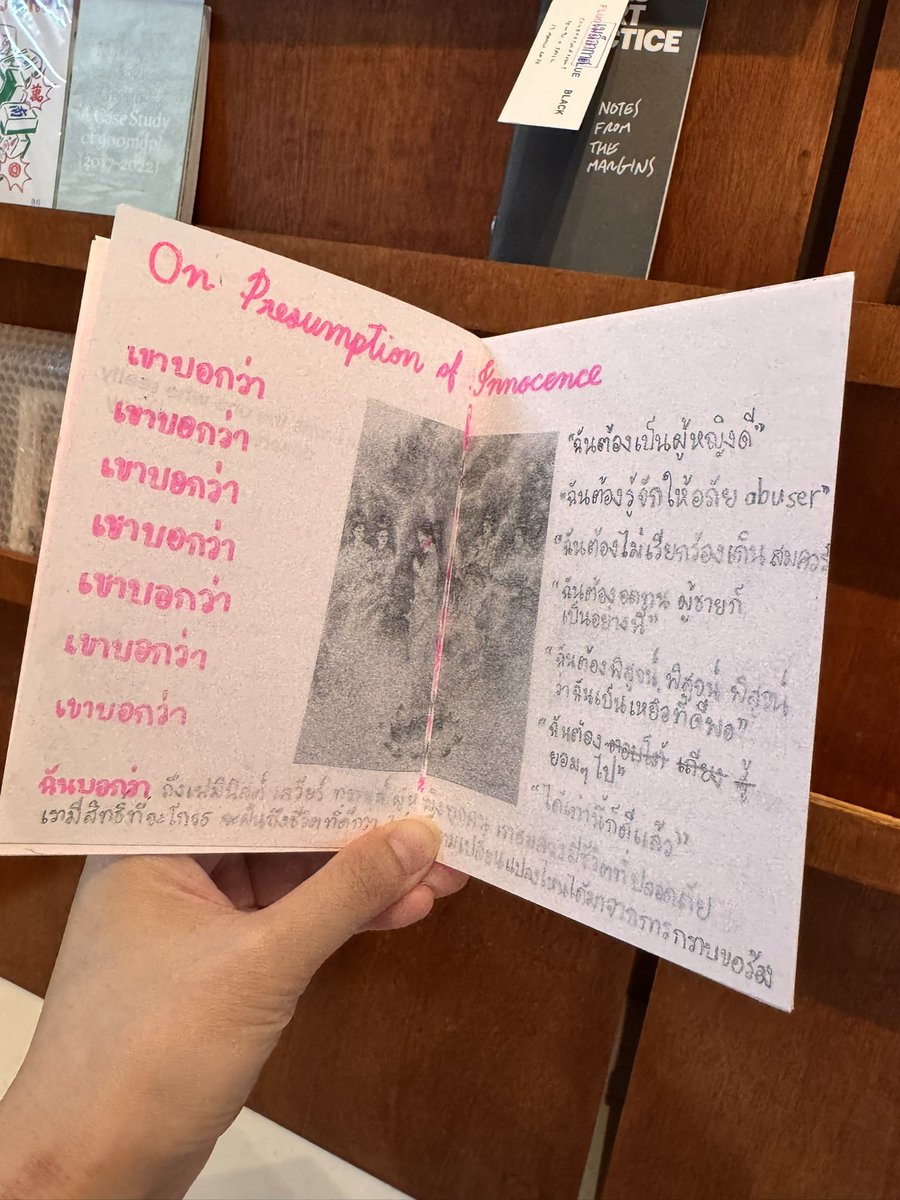 A Case Study
(2017-2022)
BLACK
CTICE
NOTES
FROM
THE
MARGINS
On Presumption of Innocence
เขาบอกว่า
เขาบอกว่า
เขาบอกว่า
เขาบอกว่า
เขาบอกว่า
เขาบอกว่า
เขาบอกว่า
"ฉันต้องเป็นผู้หญิงดี"
"ฉันต้องรู้จักให้อภัย abuser"
"ฉันต้องไม่เรียกร้องเกินสมควร
"ฉันต้องอดทน ผู้ชายก็
เป็นอย่างนี้"
"ฉันต้องพิสูจน์ พิสูจน์ พิสูจน์
ว่าฉันเป็นเหยื่อที่ดีพอ"
"ฉันต้อง ตอบโต้ เถียง สู้
ยอมๆ ไป"
"ได้เท่านี้ก็ดีแล้ว"
ฉันบอกว่า ถึงเฟมินิสต์ เควียร์
เรามีสิทธิที่จะโกรธ จะฝันถึงชีวิตที่ดีกว่า
ชีวิตที่ปลอดภัย
เปลี่ยนแปลงไหนได้มาจากการกราบขอร้อง